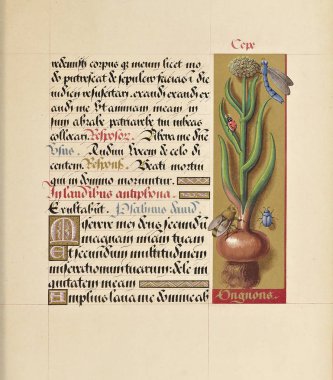 Cepe
redemisti corpus qz meum licet mo
do putrescat de sepulcro facias in die
iudicii resuscitari. exaudi exaudi ex
audi me Et animam meam in
sinu abrahe patriarche tui iubeas
collocari. Respõsoz. Libera me dñe
Vsus. Audiui vocem de celo di
centem. Respons. Beati mortui
qui in domino moriuntur.
In laudibus antiphona.
Exultabũt. Psalmus david.
Miserere mei deus secundũ
magnam misericordiam tuam
Et secundum multitudinem
miserationum tuarum: dele ini
quitatem meam
Amplius laua me ab iniquitate
Ongnons.